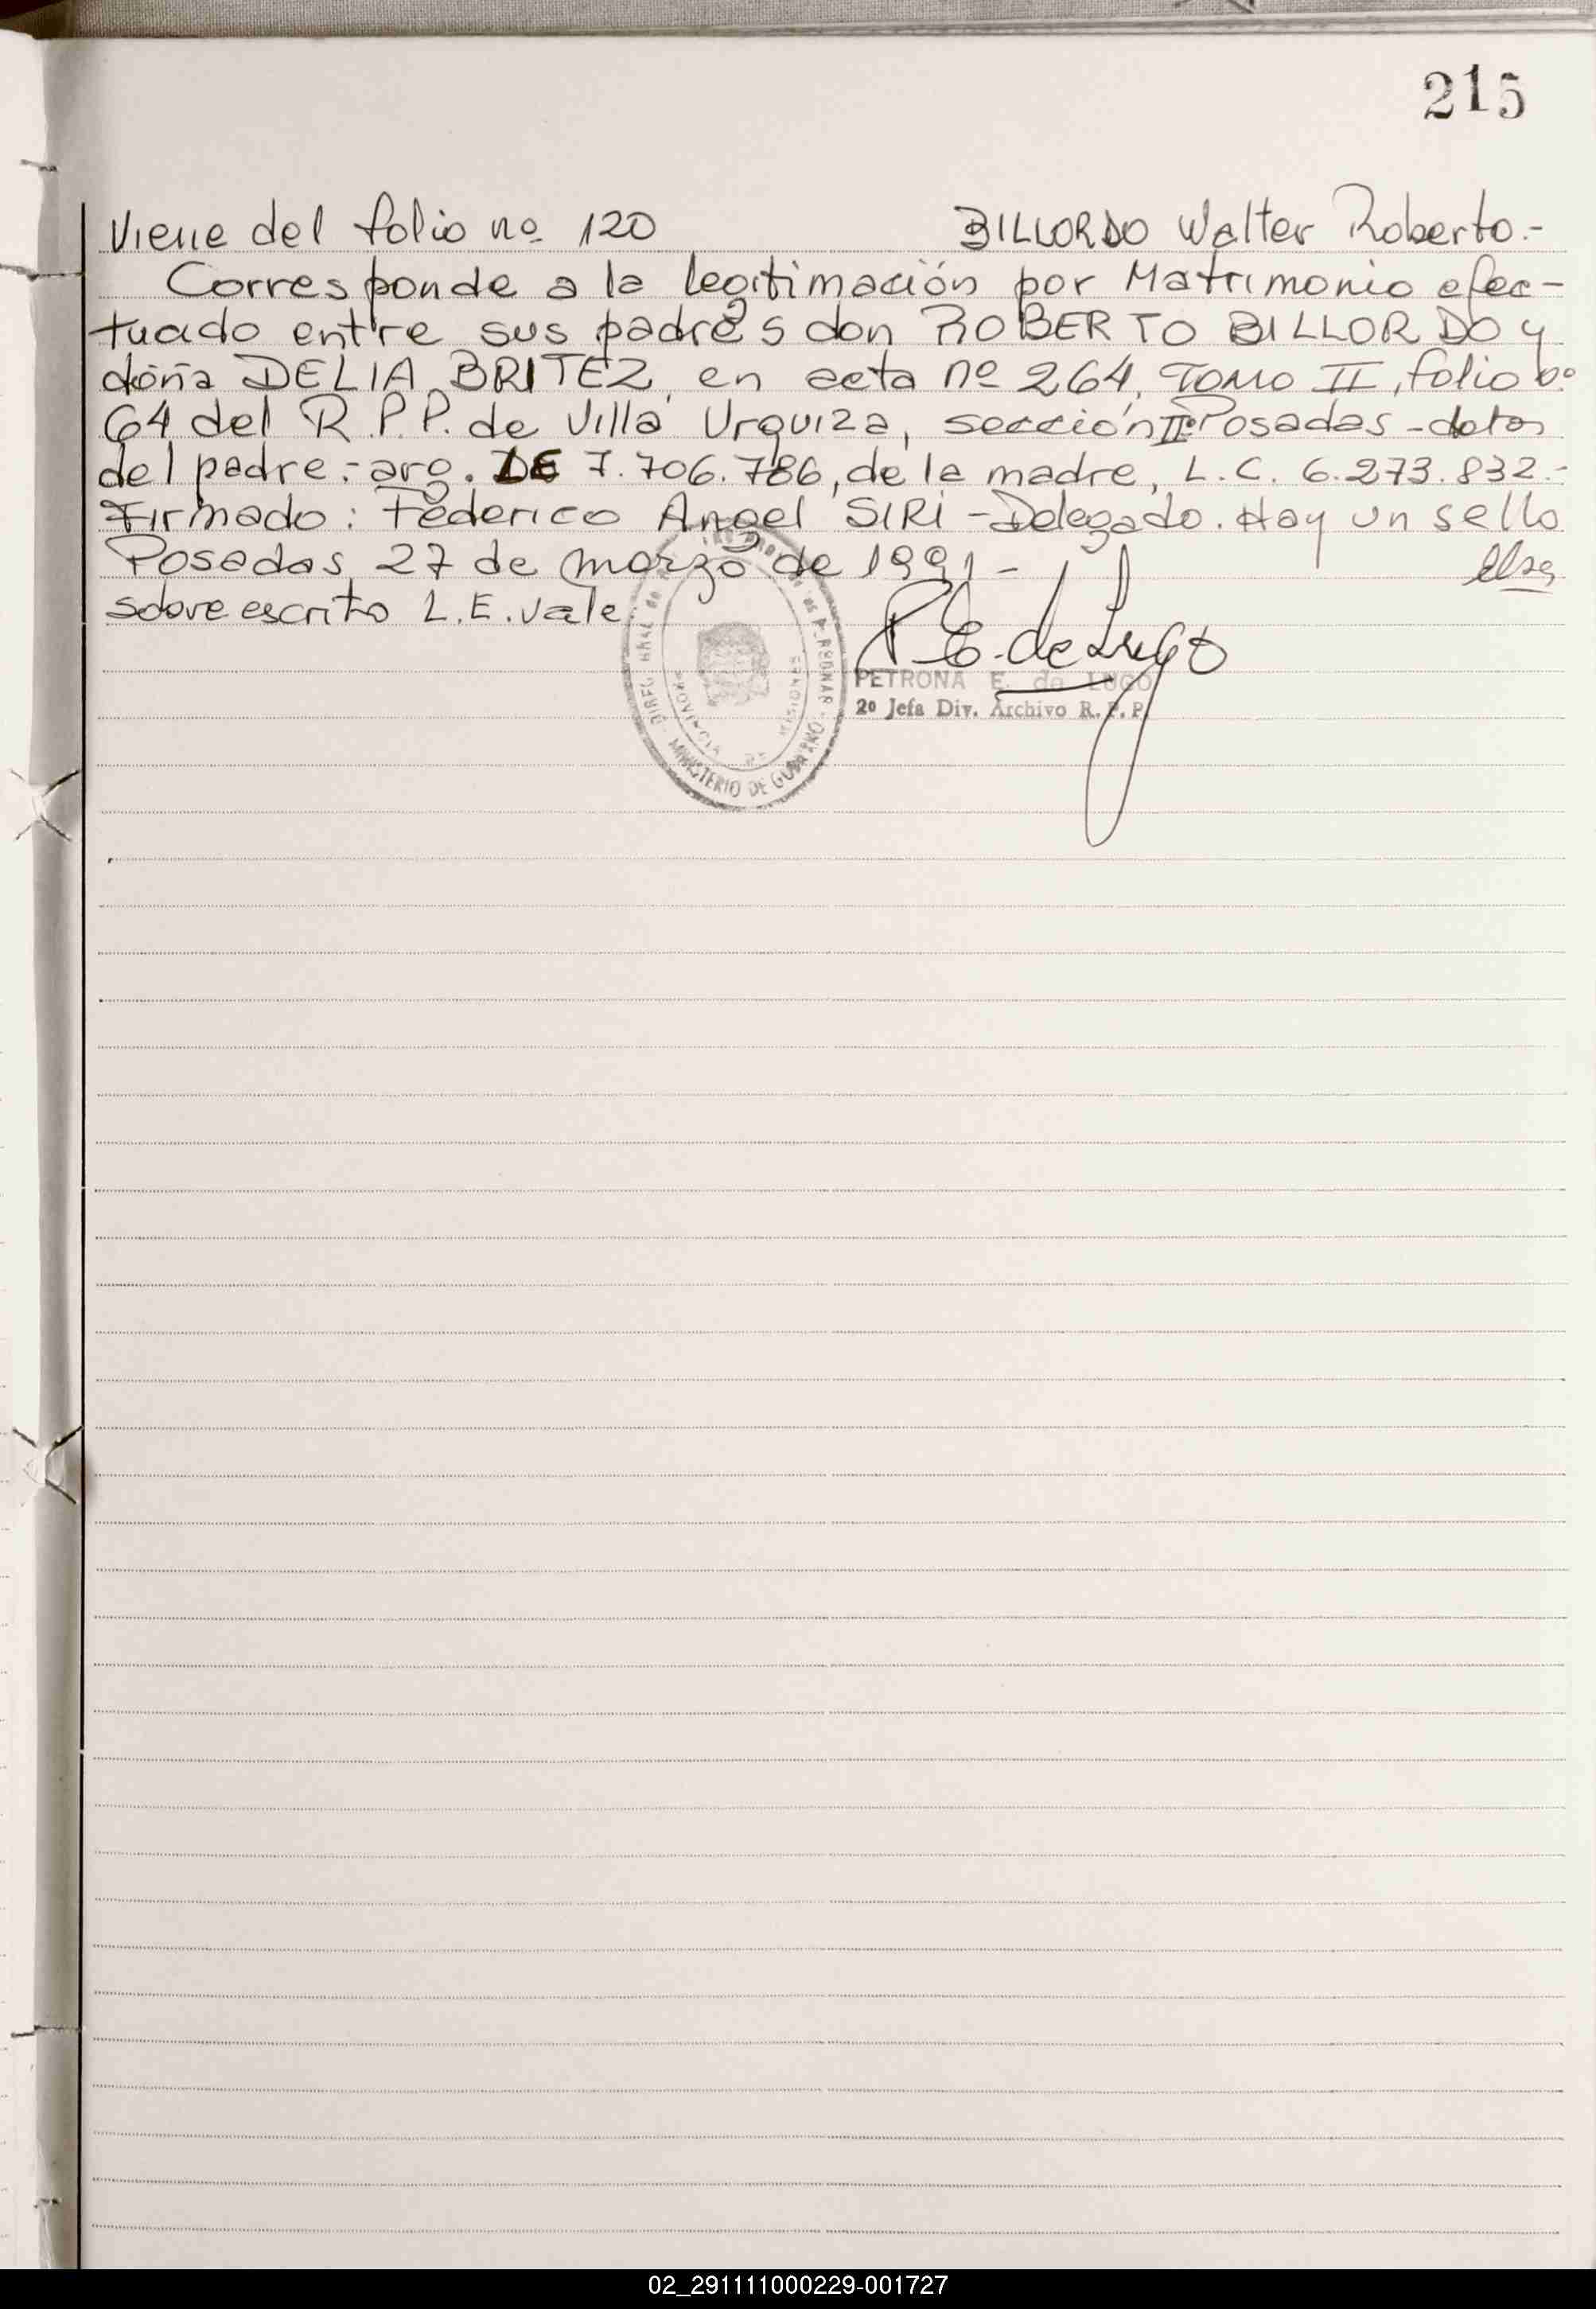 215
Viene del folio nº 120 BILLORDO Walter Roberto.-
Corresponde a la legitimación por Matrimonio efec-
tuado entre sus padres don ROBERTO BILLORDO y
doña DELIA BRITEZ, en acta nº 264, TOMO II, folio
64 del R.P.P. de Villa Urquiza, sección IIº Posadas - datos
del padre.- arg. LE 7.706.786, de la madre, L.C. 6.273.832.-
Firmado: Federico Angel SIRI - Delegado. Hay un sello
Posadas, 27 de marzo de 1991 -
sobre escrito L.E. vale.
P.E. de Lugo
PETRONA E. de LUGO
2º Jefa Div. Archivo R.P.P.
PROVINCIA DE MISIONES
MINISTERIO DE GOBIERNO
02_291111000229-001727